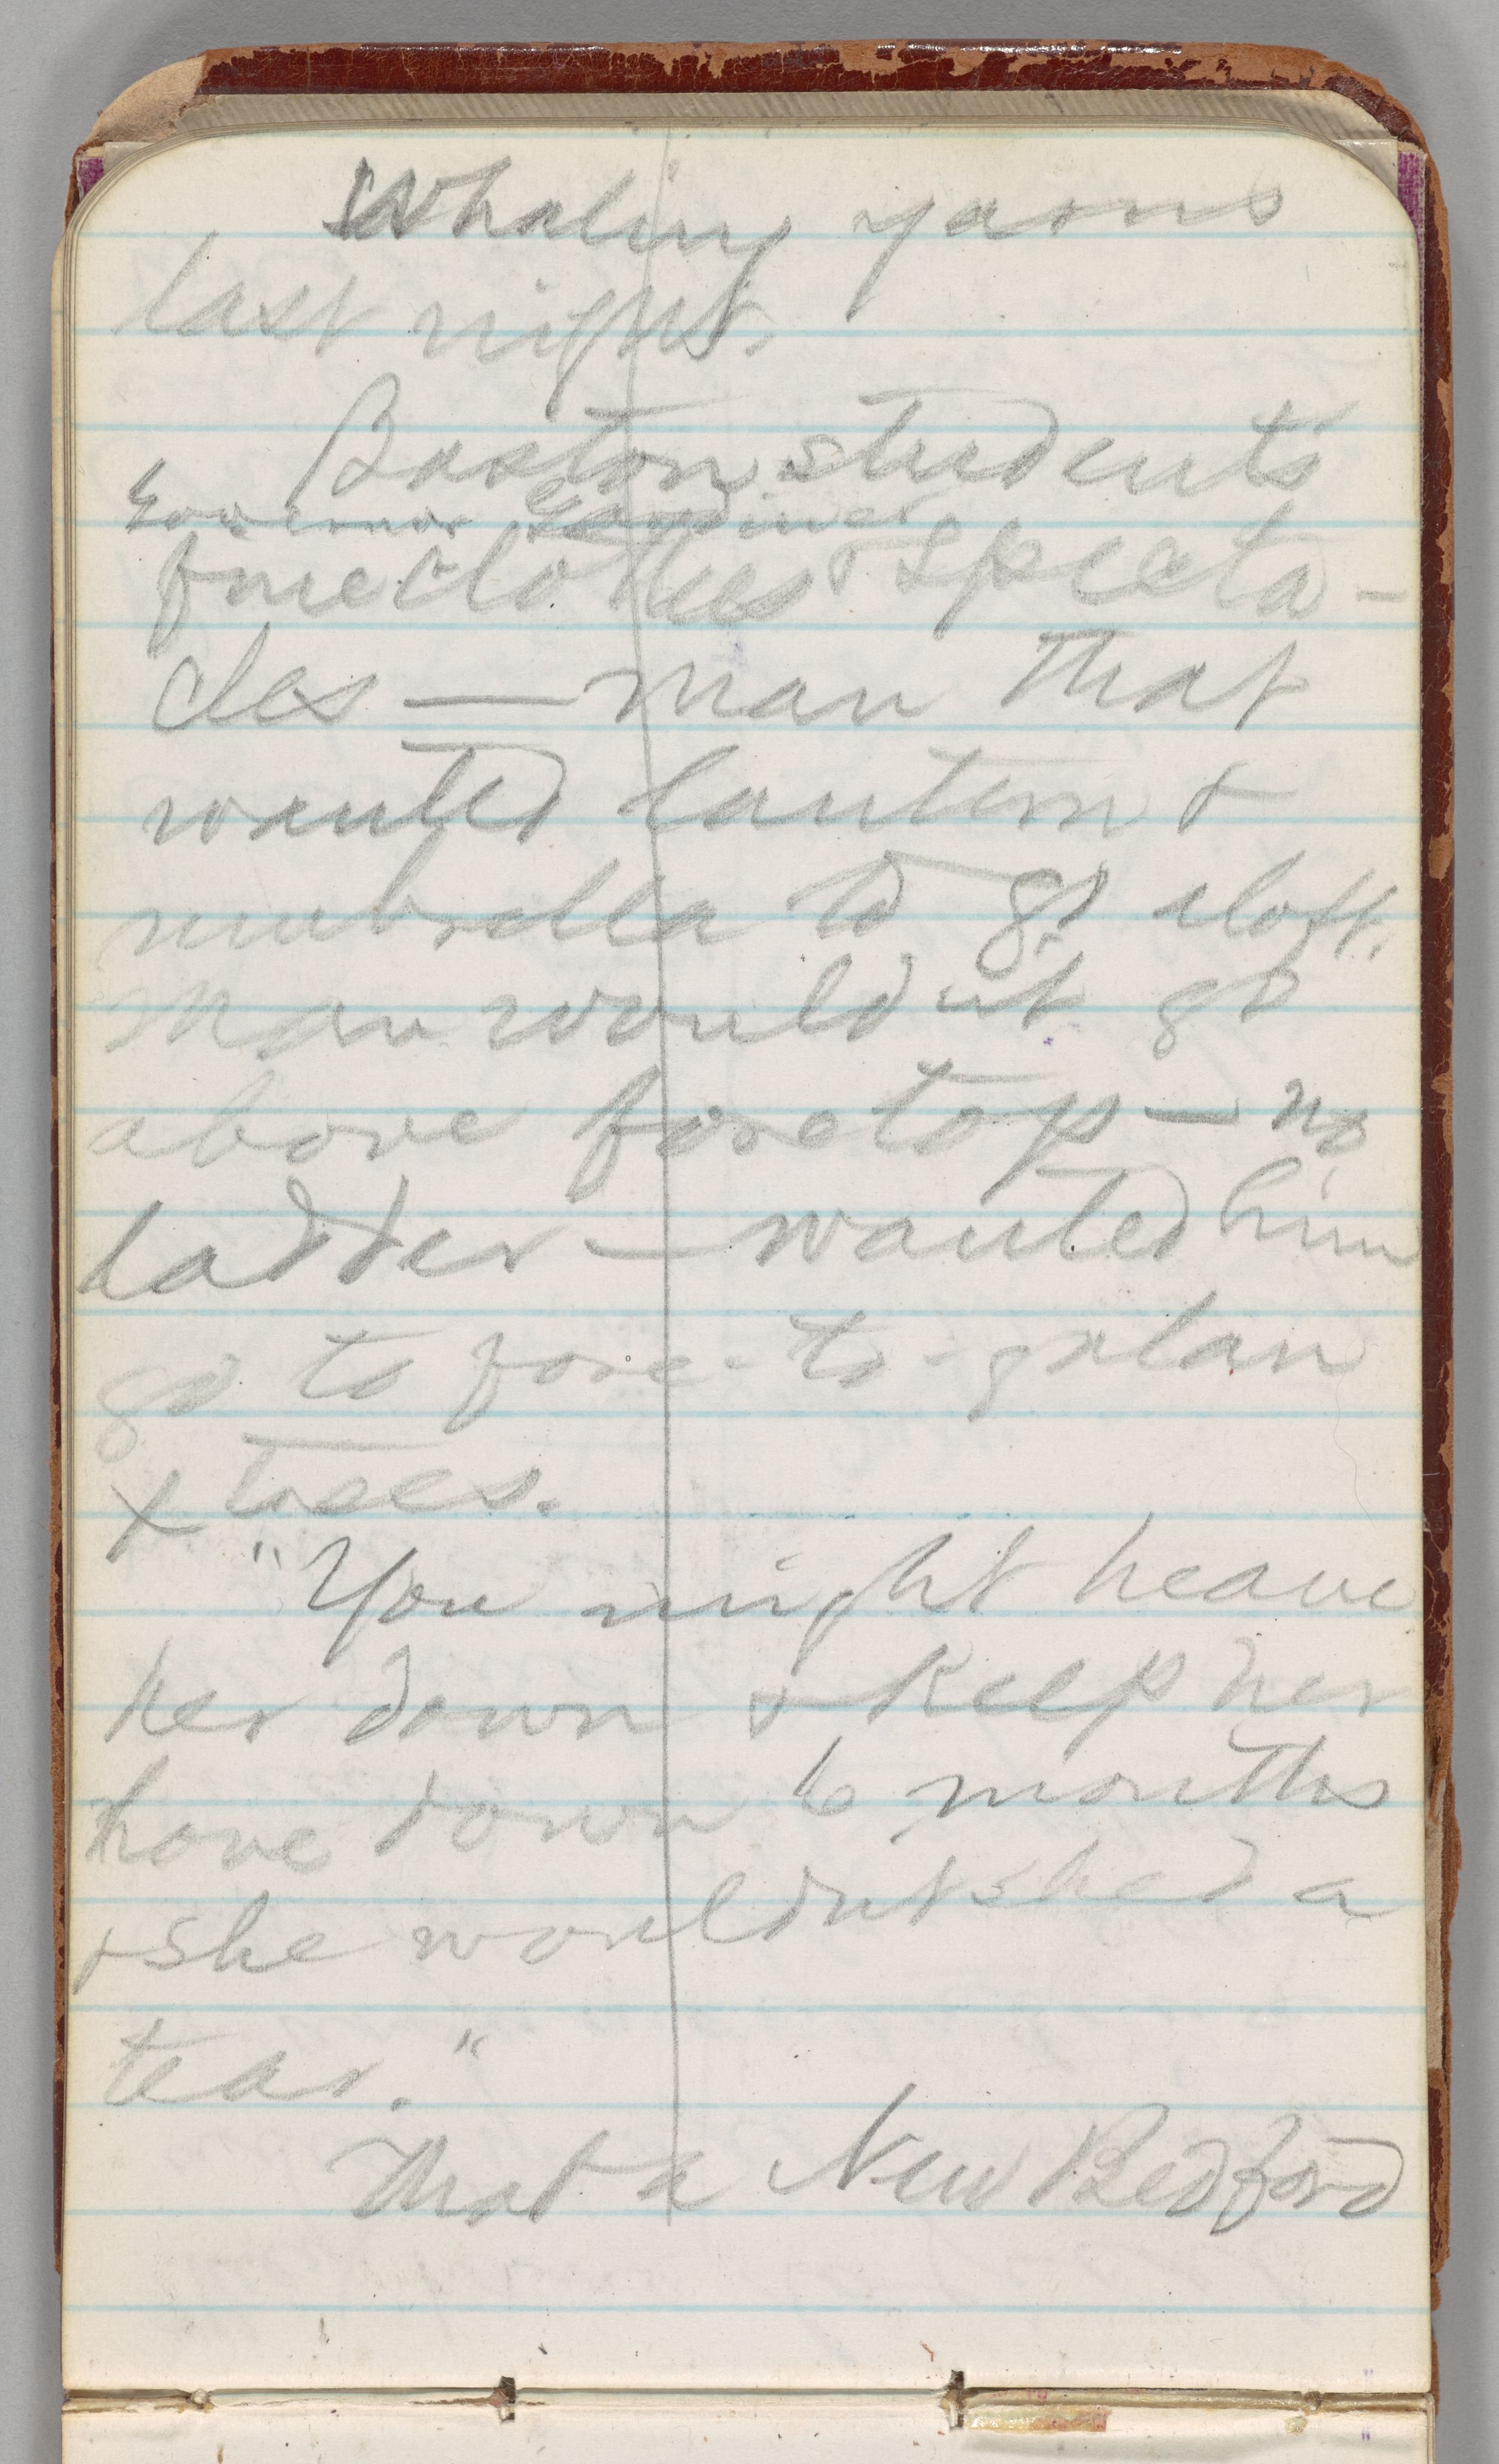 Whaling yarns
last night.
Boston students
Governor Gardiner
fine clothes & specta-
cles — man that
wanted lantern &
umbrella to go aloft.
Man wouldn't go
above foretop — no
ladder — wanted him
go to fore-to-galan
X trees.
"You might heave
her down & keep her
hove down 6 months
& she wouldnt shed a
tear."
That a New Bedford